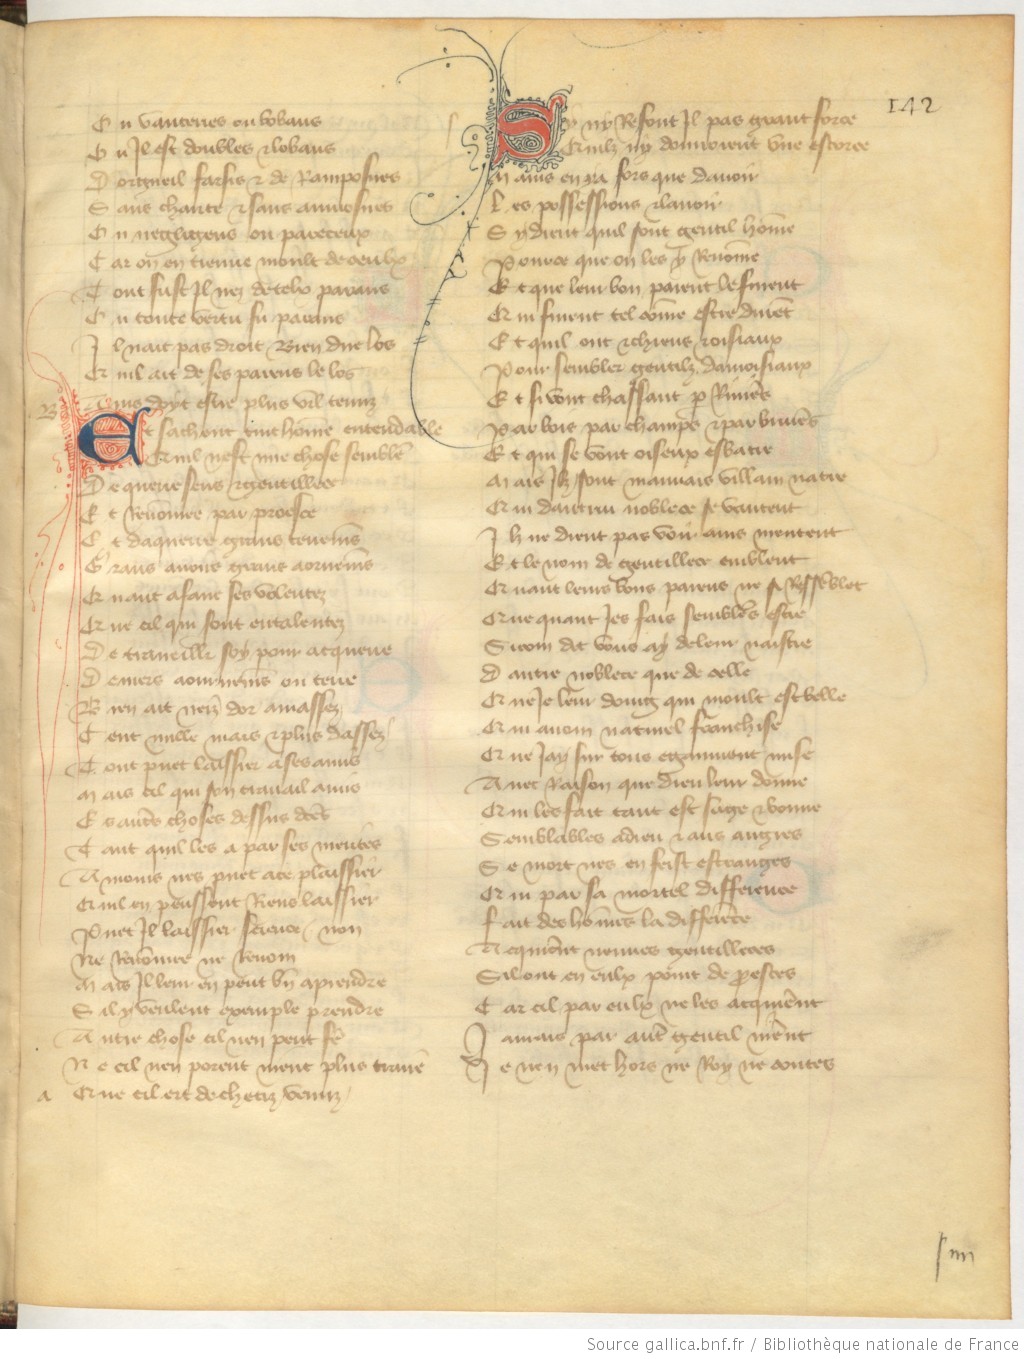 142
Ou vanterres ou bobans
Ou Il est doubles & lobans
D orgueil farsis & de Ramposnes
S ans charite & sans aumosnes
Ou negligens ou pareceux
C ar on en treuue moult de ceulx
T out fust Il nez de telx parans
Ou toute vertu fu parans
I l nait pas droit Bien dire los
Qu il ait de ses parens le los
B Ains doyt estre plus vil tenuz
E t sachent tuit home entendable
Qu il nest nue chose semble
De querre sens & gentillece
E t Renomee par proesce
C t daquerre grans tenems
G rans auoirs grans aornems
Quant a fare ses volentez
Que cil qui sont entalentez
De traueillr soy pour acquerre
D eniers aournems ou terre
B ien ait neis dor amassez
C ent mille mars & plus dassez
T out puet laissier a ses amis
M ais cil qui son trauail a mis
Es autres choses dessus dctes
T ant quil les a par ses merites
A mours nes puet a ce plaissier
Qu il en peussent Riens laissier
Puet Il laissier science non
Ne Renomee ne Renom
M ais Il leur en peut bn aprendre
S il y veulent exemple prendre
A utre chose cil nen peut fe
N e cil nen porent nient plus traire
a
S y ny Refont Il pas grant force
Qu ilz ny donnroient vne escorce
M ains en ya fors que dauoir
L es possessions & lauoir
S y dient quil sont gentil home
Pource que on les y Renome
Et que leur bon parent le furent
Qui furent tel come estre durent
Et quil ont & chiens & oisiaux
Pour sembler gentilz damoisiaux
Et si vont chassant p Riuieres
Par bois par champs & par bruieres
Et qui se vont oiseux esbatre
M ais Ilz sont mauuais villain natre
Qui dautrui noblece se vantent
I lz ne dient pas voir ains mentent
Et le nom de gentillece emblent
Quant leurs bons parens ne Ressemblet
Que quant Jes fais sembles estre
S icom dit vous ay de leur naistre
D autre noblece que de celle
Que Je leur doing qui moult est belle
Qui a nom naturel franchise
Que Jay sur tous egaument mise
A uec Raison que dieu leur donne
Qui les fait tant est sage & bonne
Semblables a dieu & aus angres
S e mort nes en feist estranges
Qui par sa mortel difference
F ait des homes la difference
A cquierent neuues gentilleces
S il ont en eulx point de proesces
C ar cil par eulx ne les acquierent
J amais par autr gentil nierent
J e nen met hors ne Roy ne contes
Source gallica.bnf.fr / Bibliothèque nationale de France